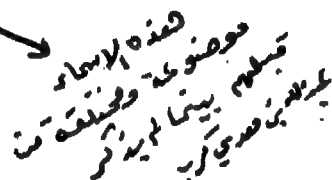 هذه الاسماء
موضوعة ومختلقة من
قبلهم بينما لم يذكر
معدي كرب